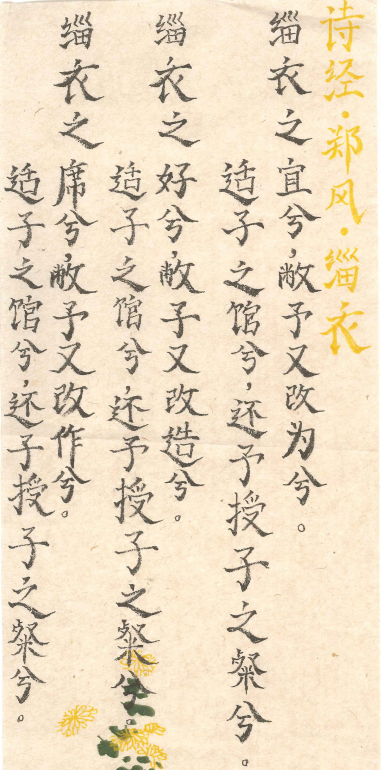 诗经·郑风·缁衣
缁衣之宜兮,敝予又改为兮。
适子之馆兮,还予授子之粲兮。
缁衣之好兮,敝予又改造兮。
适子之馆兮,还予授子之粲兮。
缁衣之席兮,敝予又改作兮。
适子之馆兮,还予授子之粲兮。